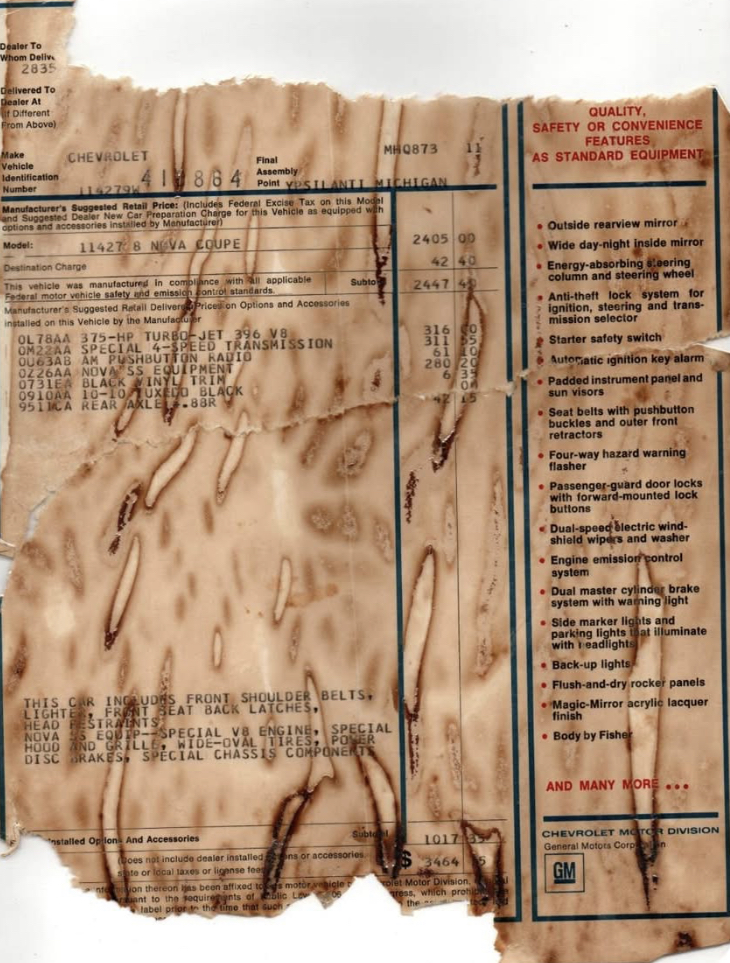 Dealer To
Whom Delive
2835
Delivered To
Dealer At
(If Different
From Above)
Make CHEVROLET MHQ873 11
Vehicle Final
Identification Assembly
Number 114279W 410864 Point YPSILANTI MICHIGAN
Manufacturer's Suggested Retail Price: (Includes Federal Excise Tax on this Model
and Suggested Dealer New Car Preparation Charge for this Vehicle as equipped with
options and accessories installed by Manufacturer)
Model: 11427 8 NOVA COUPE 2405 00
Destination Charge 42 40
This vehicle was manufactured in compliance with all applicable Subto 2447 40
Federal motor vehicle safety and emission control standards.
Manufacturer's Suggested Retail Delivered Prices on Options and Accessories
Installed on this Vehicle by the Manufacturer
0L78AA 375-HP TURBO-JET 396 V8 316
0M22AA SPECIAL 4-SPEED TRANSMISSION 311
0U63AB AM PUSHBUTTON RADIO 61 10
0Z26AA NOVA SS EQUIPMENT 280 20
0731EA BLACK VINYL TRIM 6 35
0910AA 10-10 TUXEDO BLACK
9511CA REAR AXLE .88R 42 15
THIS CAR INCLUDES FRONT SHOULDER BELTS,
LIGHTER, FRONT SEAT BACK LATCHES,
HEAD RESTRAINTS
NOVA SS EQUIP--SPECIAL V8 ENGINE, SPECIAL
HOOD AND GRILLE, WIDE-OVAL TIRES, POWER
DISC BRAKES, SPECIAL CHASSIS COMPONENTS
Installed Options And Accessories Subtotal 1017
(Does not include dealer installed options or accessories, $ 3464
state or local taxes or license fees
thereon has been affixed to this motor vehicle Chevrolet Motor Division,
to the requirements of Public Law which
label prior to the time that such the
QUALITY,
SAFETY OR CONVENIENCE
FEATURES
AS STANDARD EQUIPMENT
• Outside rearview mirror
• Wide day-night inside mirror
• Energy-absorbing steering
column and steering wheel
• Anti-theft lock system for
ignition, steering and trans-
mission selector
• Starter safety switch
• Automatic ignition key alarm
• Padded instrument panel and
sun visors
• Seat belts with pushbutton
buckles and outer front
retractors
• Four-way hazard warning
flasher
• Passenger-guard door locks
with forward-mounted lock
buttons
• Dual-speed electric wind-
shield wipers and washer
• Engine emission control
system
• Dual master cylinder brake
system with warning light
• Side marker lights and
parking lights that illuminate
with headlights
• Back-up lights
• Flush-and-dry rocker panels
• Magic-Mirror acrylic lacquer
finish
• Body by Fisher
AND MANY MORE ...
CHEVROLET MOTOR DIVISION
General Motors Corporation
GM